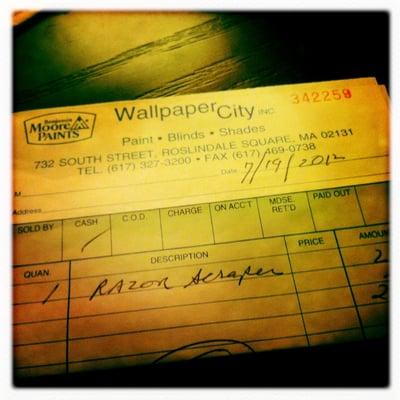 342259
Benjamin
Moore
PAINTS
Wallpaper City INC.
Paint • Blinds • Shades
732 SOUTH STREET, ROSLINDALE SQUARE, MA 02131
TEL. (617) 327-3200 • FAX (617) 469-0738
Date 7/19/2012
M
Address
SOLD BY CASH C.O.D. CHARGE ON ACC'T MDSE. RET'D PAID OUT
QUAN. DESCRIPTION PRICE AMOUN
1 RAZOR Scraper 2
2